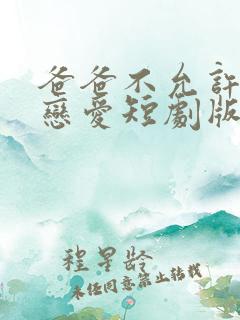 爸爸不允許
戀愛短劇版
程星齡
未經同意禁止轉載